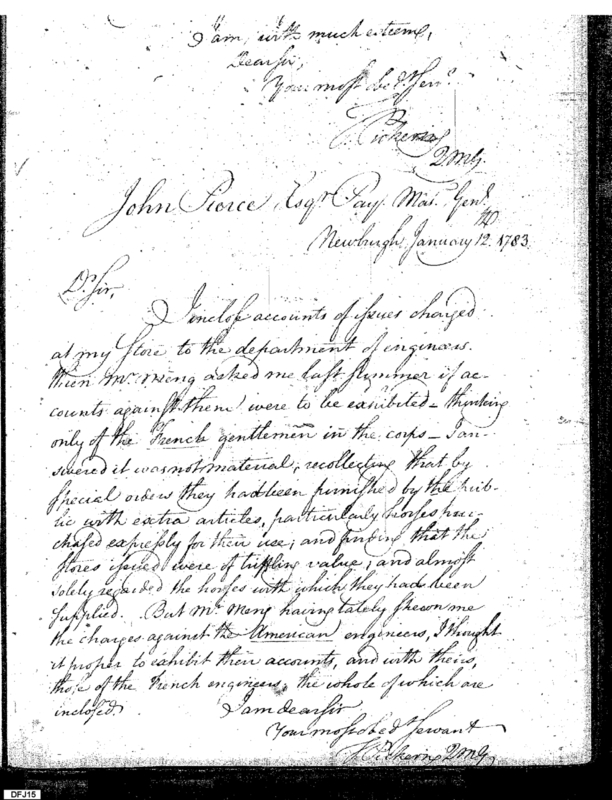 I am, with much esteem,
Dear sir,
Your most obedt. Servt.
T. Pickering
2MG.
John Pierce, Esqr. Pay. Mast. Genl.
Newburgh January 12.th 1783.
Dr. Sir,
I inclose accounts of issues charged
at my store to the department of engineers.
When Mr. Meng asked me last summer if ac-
counts against them were to be exhibited - thinking
only of the French gentlemen in the corps - I an-
swered it was not material; recollecting that by
special orders they had been furnished by the pub-
lic with extra articles, particularly horses pur-
chased expressly for their use; and finding that the
stores issued were of trifling value; and almost
solely regarded the horses with which they had been
supplied. But Mr. Meng having lately shewn me
the charges against the American engineers, I thought
it proper to exhibit their accounts, and with theirs,
those of the French engineers; the whole of which are
inclosed. I am dear sir
Your most obedt. servant
T. Pickering 2MG.
DFJ15